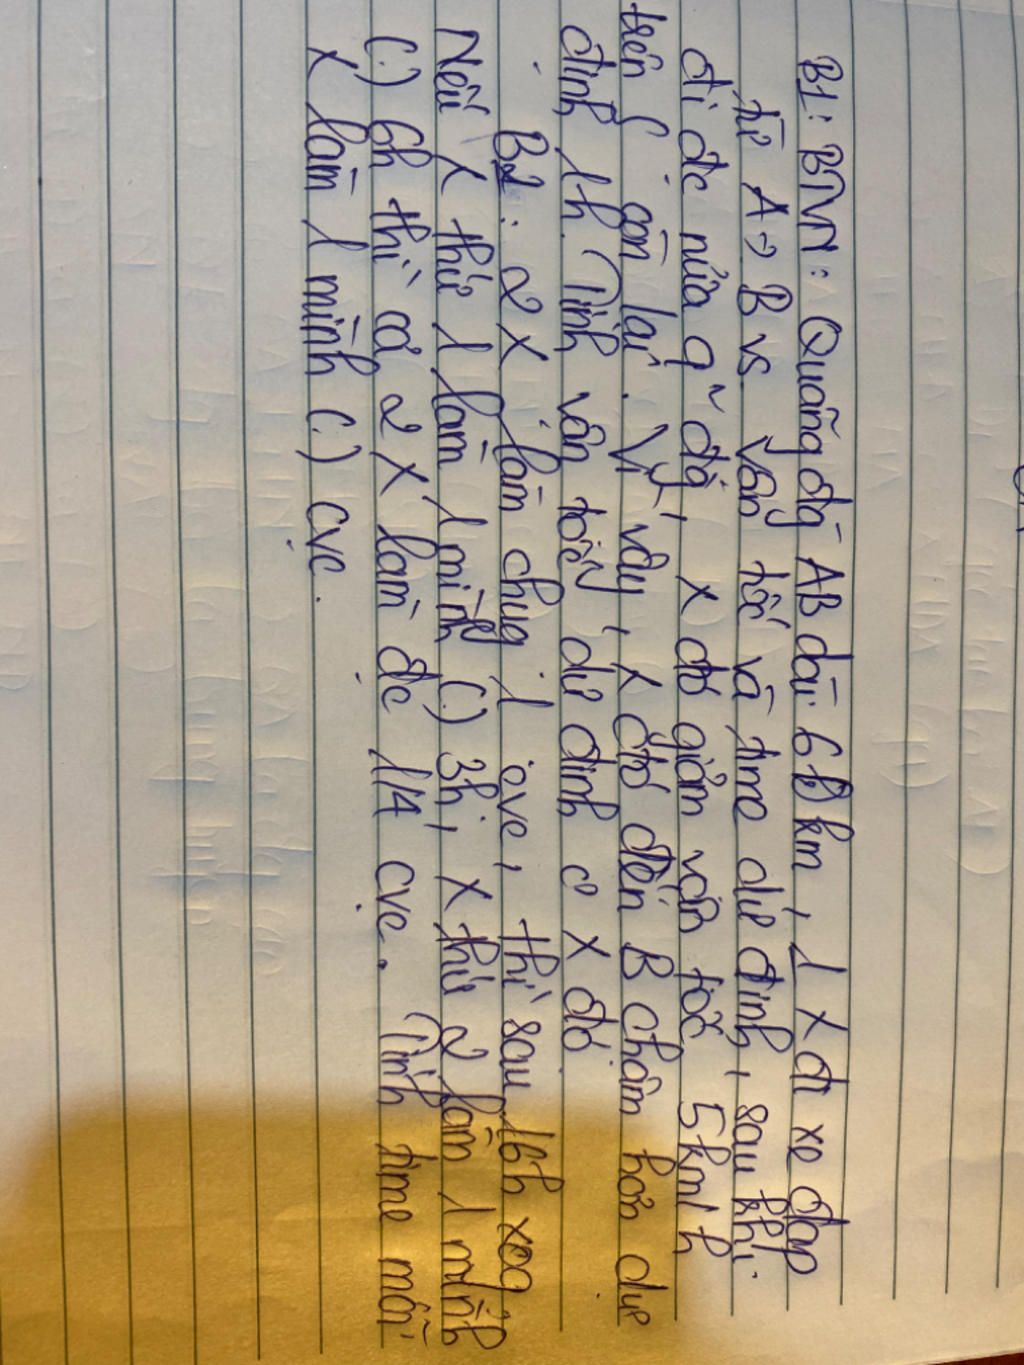 B1: BTVN: Quãng đg AB dài 60 km, 1 x đi xe đạp
từ A→B vs vận tốc và time dự định, sau khi
đi đc nửa q~ đg, x đó giảm vận tốc 5km/h
trên còn lại. Vì vậy, x đó đến B chậm hơn dự
định 1h. Tính vận tốc dự định c x đó
B2: 2 x làm chug 1 cvc, thì sau 16h xog.
Nếu x thứ 1 làm 1 mình (.) 3h, x thứ 2 làm 1 mình
(.) 6h thì cả 2 x làm đc 1/4 cvc. Tính time mỗi
x làm 1 mình (.) cvc.